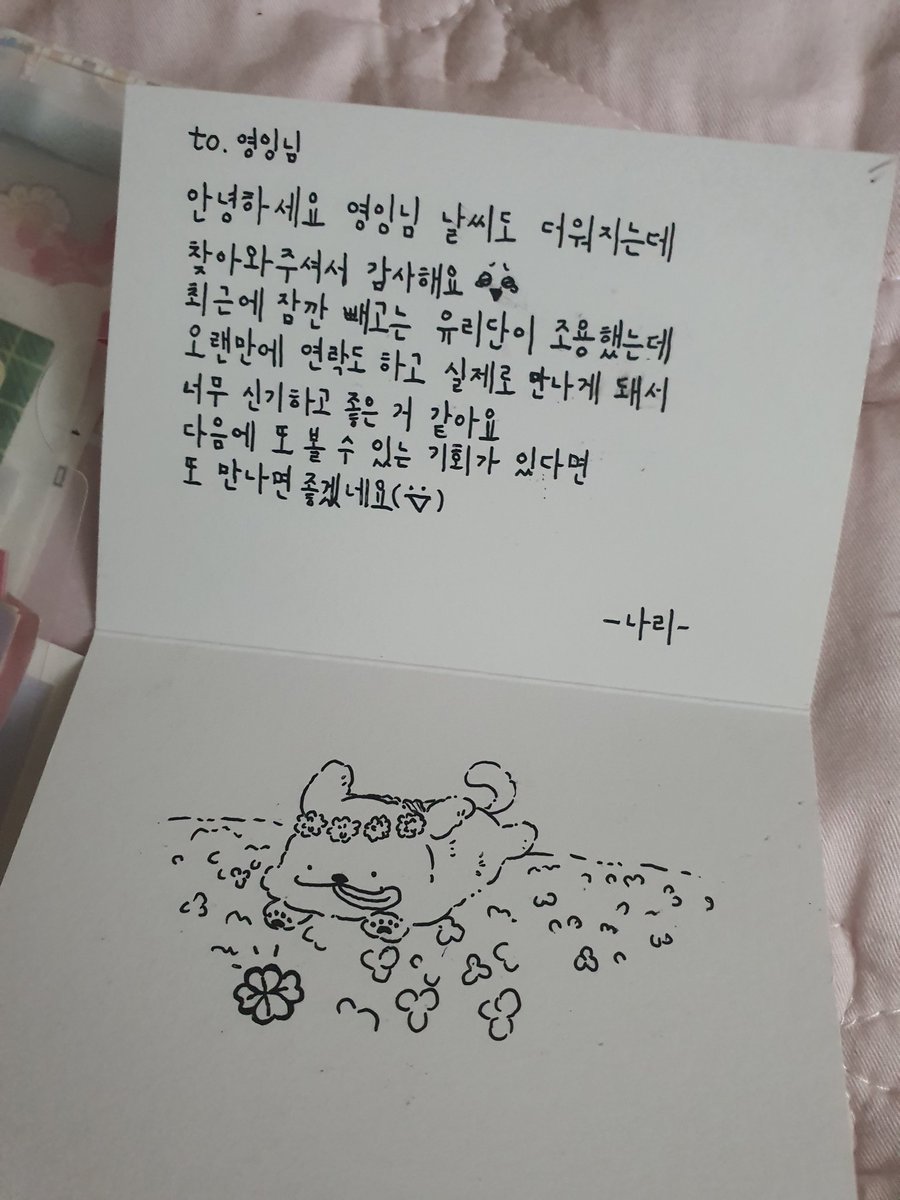 to. 영잉님
안녕하세요 영잉님 날씨도 더워지는데
찾아와주셔서 감사해요
최근에 잠깐 빼고는 유리단이 조용했는데
오랜만에 연락도 하고 실제로 만나게 돼서
너무 신기하고 좋은 거 같아요
다음에 또 볼 수 있는 기회가 있다면
또 만나면 좋겠네요(¨▽)
-나리-